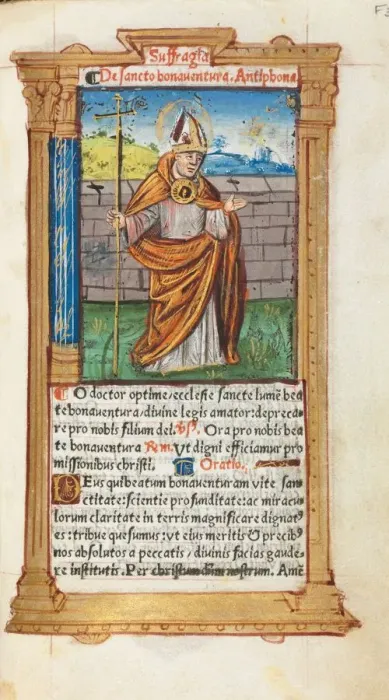 Suffragia
De sancto bonaventura. Antiphona.
O doctor optime/ecclesie sancte lumē bea
te bonaventura/divine legis amator: depreca-
re pro nobis filium dei. Vs. Ora pro nobis bea
te bonaventura Rem. Vt digni efficiamur pro
missionibus christi. Oratio.
DEus qui beatum bonaventuram vite san
ctitate: scientie profunditate: ac miracu
lorum claritate in terris magnificare dignat⁹
es: tribue quesumus: vt eius meritis & precib⁹
nos absolutos a peccatis/divinis facias gaude-
re institutis. Per christum dñm nostrum. Amē